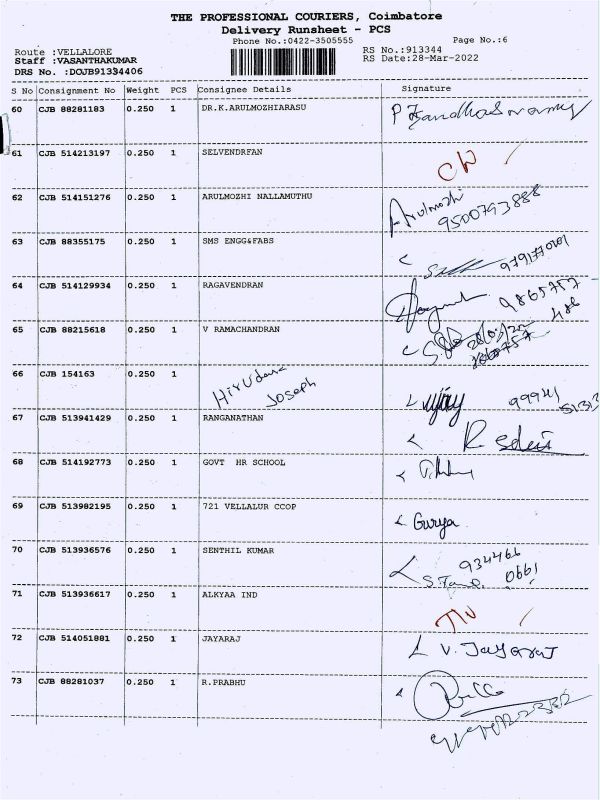 THE PROFESSIONAL COURIERS, Coimbatore
Delivery Runsheet - PCS
Phone No.:0422-3505555 Page No.:6
Route :VELLALORE RS No.:913344
Staff :VASANTHAKUMAR RS Date:28-Mar-2022
DRS No. :DOJB91334406
S No Consignment No Weight PCS Consignee Details Signature
60 CJB 88281183 0.250 1 DR.K.ARULMOZHIARASU
61 CJB 514213197 0.250 1 SELVENDRFAN
62 CJB 514151276 0.250 1 ARULMOZHI NALLAMUTHU Arulmozhi
9500793888
63 CJB 88355175 0.250 1 SMS ENGG&FABS
64 CJB 514129934 0.250 1 RAGAVENDRAN
65 CJB 88215618 0.250 1 V RAMACHANDRAN
66 CJB 154163 0.250 1
Joseph
67 CJB 513941429 0.250 1 RANGANATHAN
68 CJB 514192773 0.250 1 GOVT HR SCHOOL
69 CJB 513982195 0.250 1 721 VELLALUR CCOP
70 CJB 513936576 0.250 1 SENTHIL KUMAR 934466
0661
71 CJB 513936617 0.250 1 ALKYAA IND
72 CJB 514051881 0.250 1 JAYARAJ V. Jayaraj
73 CJB 88281037 0.250 1 R.PRABHU